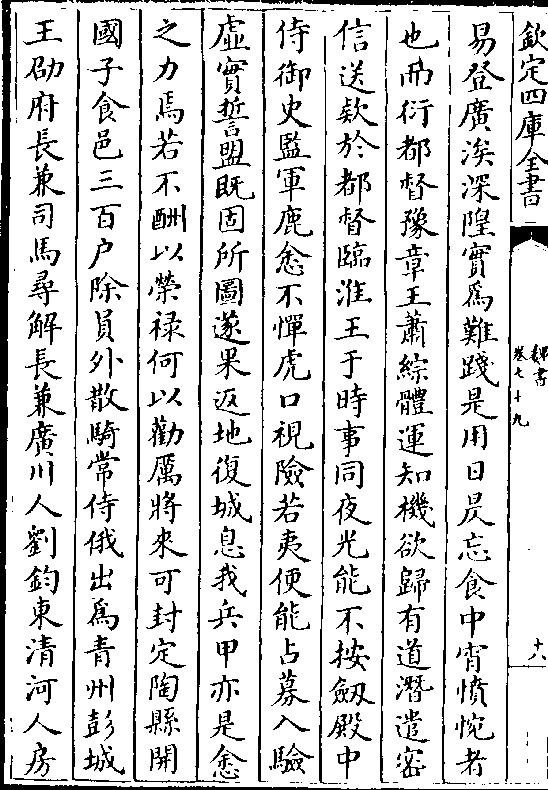 欽定四庫全書
魏書
卷七十九
十八
易登廣涘深隍實為難踐是用日昃忘食中宵憤惋者
也而衍都督豫章王蕭綜體運知機欲歸有道潛遣密
信送欵於都督臨淮王于時事同夜光能不按劔殿中
侍御史監軍鹿悆不憚虎口視險若夷便能占募入驗
虛實誓盟既固所圖遂果返地復城息我兵甲亦是悆
之力焉若不酬以榮祿何以勸厲將來可封定陶縣開
國子食邑三百户除員外散騎常侍俄出為青州彭城
王劭府長兼司馬尋解長兼廣川人劉鈞東清河人房